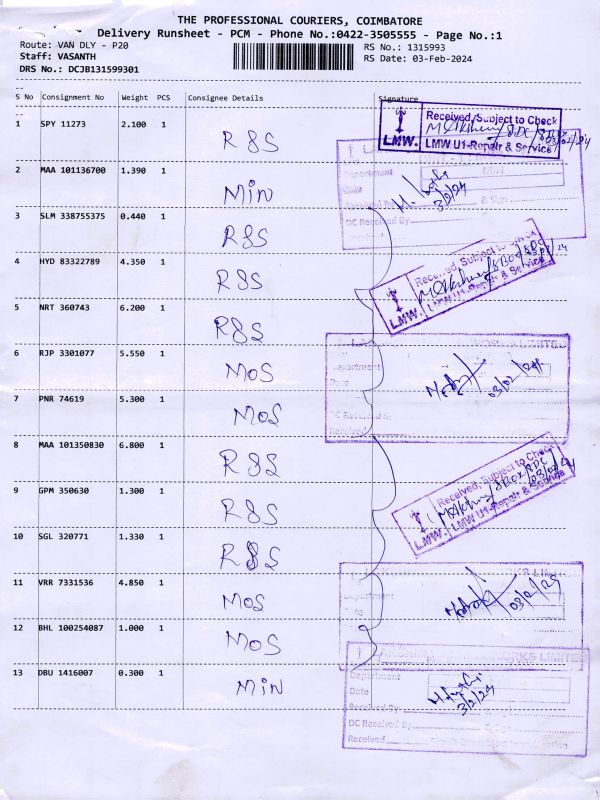 THE PROFESSIONAL COURIERS, COIMBATORE
Delivery Runsheet - PCM - Phone No.:0422-3505555 - Page No.:1
Route: VAN DLY - P20 RS No.: 1315993
Staff: VASANTH RS Date: 03-Feb-2024
DRS No.: DCJB131599301
S No Consignment No Weight PCS Consignee Details Signature
1 SPY 11273 2.100 1 R&S
Received, Subject to Check
LMW. LMW U1-Repair & Service
03/02/24
2 MAA 101136700 1.390 1 MIN
Department
Date
3/2/24
DC Received By
3 SLM 338755375 0.440 1 R&S
4 HYD 83322789 4.350 1 R&S
Received, Subject to Check
LMW. LMW U1-Repair & Service
5 NRT 360743 6.200 1 R&S
6 RJP 3301077 5.550 1 MOS
LIMITED
Department
Date
03/02/24
7 PNR 74619 5.300 1 MOS
8 MAA 101350830 6.800 1 R&S
Received, Subject to Check
LMW. LMW U1-Repair & Service
9 GPM 350630 1.300 1 R&S
10 SGL 320771 1.330 1 R&S
11 VRR 7331536 4.850 1 MOS
Department
03/02/24
12 BHL 100254087 1.000 1 MOS
13 DBU 1416007 0.300 1 MIN
Department
Date
3/2/24
Received By
DC Received By
Received